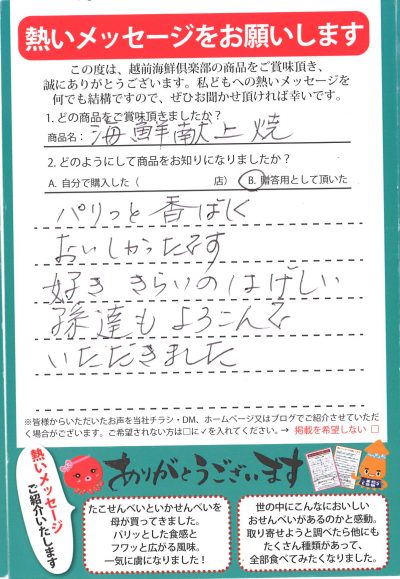 熱いメッセージをお願いします
この度は、越前海鮮倶楽部の商品をご賞味頂き、
誠にありがとうございます。私どもへの熱いメッセージを
何でも結構ですので、ぜひお聞かせ頂ければ幸いです。
1. どの商品をご賞味頂きましたか？
商品名： 海鮮献上焼
2. どのようにして商品をお知りになりましたか？
A. 自分で購入した（ 店） B. 贈答用として頂いた
パリっと香ばしく
おいしかったです
好ききらいのはげしい
孫達もよろこんで
いただきました
※皆様からいただいたお声を当社チラシ・DM、ホームページ又はブログでご紹介させていただ
く場合がございます。ご希望されない方は□に✓を入れてください。→ 掲載を希望しない □
ありがとうございます
熱いメッセージ
ご紹介いたします
たこせんべいといかせんべいを
母が買ってきました。
パリッとした食感と
フワッと広がる風味。
一気に虜になりました！
世の中にこんなにおいしい
おせんべいがあるのかと感動。
取り寄せようと調べたら他にも
たくさん種類があって、
全部食べてみたくなりました。